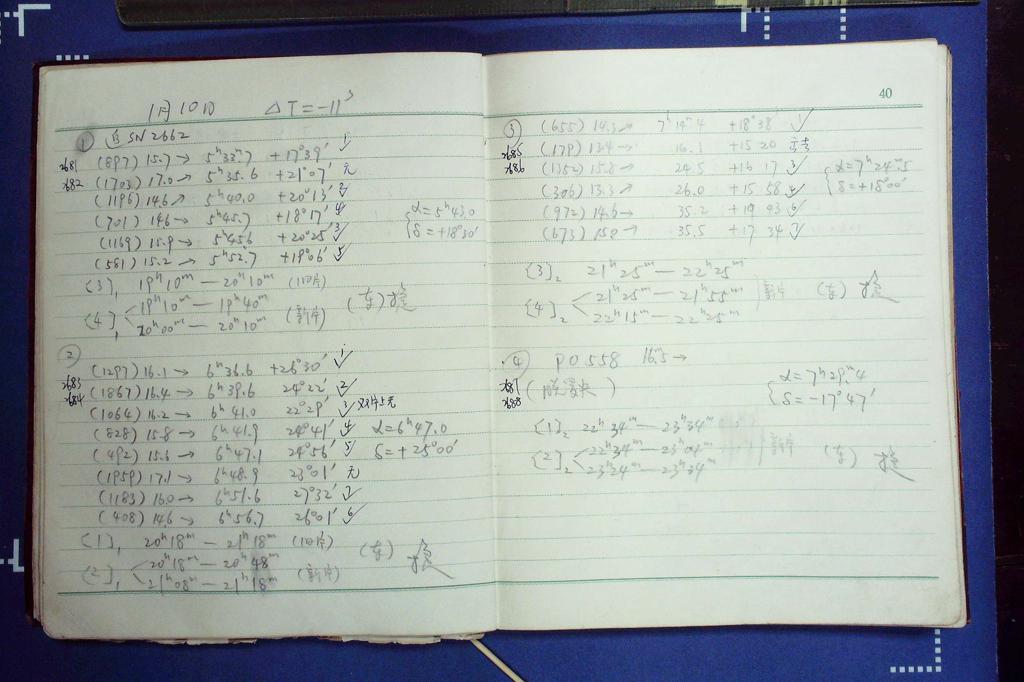 1月10日 △T=-11ˢ
① 追 SN2662
2681 (897) 15.7→ 5ʰ33ᵐ7 +17°39′ 1✓
2682 (1703) 17.0→ 5ʰ35.6 +21°07′ 无
(1196) 14.6↗ 5ʰ40.0 +20°13′ 2✓
(701) 14.6→ 5ʰ45.7 +18°17′ 4✓
(1169) 15.9→ 5ʰ45.6 +20°25′ 3✓
(581) 15.2→ 5ʰ52.7 +19°06′ 5✓
{α=5ʰ43.0
δ=+18°30′
{3}₁ 19ʰ10ᵐ—20ʰ10ᵐ (旧片)
{4}₁ 19ʰ10ᵐ—19ʰ40ᵐ
20ʰ00ᵐ—20ʰ10ᵐ (新片) (东)
②
2683 (1297) 16.1→ 6ʰ36.6 +26°30′ 1✓
2684 (1867) 16.4→ 6ʰ39.6 24°22′ 2✓
(1064) 16.2→ 6ʰ41.0 22°29′ 3
(828) 15.8→ 6ʰ41.9 24°41′ 4✓
(492) 15.6→ 6ʰ47.1 24°56′ 5✓
(1959) 17.1→ 6ʰ48.9 23°01′ 无
(1183) 16.0→ 6ʰ51.6 27°32′ 7✓
(408) 14.6→ 6ʰ56.7 26°01′ 6✓
α=6ʰ47.0
δ=+25°00′
{1}₁ 20ʰ18ᵐ—21ʰ18ᵐ (旧片)
{2}₁ 20ʰ18ᵐ—20ʰ48ᵐ
21ʰ08ᵐ—21ʰ18ᵐ (新片) (东)
40
③ (655) 14.3→ 7ʰ14ᵐ4 +18°38′ 1✓
2685 (179) 13.4→ 16.1 +15 20
2686 (1352) 15.8→ 24.5 +16 17 3✓
(306) 13.3↗ 26.0 +15 58 4✓
(972) 14.6→ 35.2 +19 03 6✓
(673) 15.0→ 35.5 +17 34 7✓
{α=7ʰ24ᵐ.5
δ=+18°00′
{3}₂ 21ʰ25ᵐ—22ʰ25ᵐ
{4}₂ 21ʰ25ᵐ—21ʰ55ᵐ
22ʰ15ᵐ—22ʰ25ᵐ 新片 (东)
④ PO558 16ᵐ.5→
2687
2688
{α=7ʰ29ᵐ.4
δ=-17°47′
{1}₂ 22ʰ34ᵐ—23ʰ34ᵐ
{2}₂ 22ʰ34ᵐ—23ʰ04ᵐ
23ʰ24ᵐ—23ʰ34ᵐ 新片 (东)